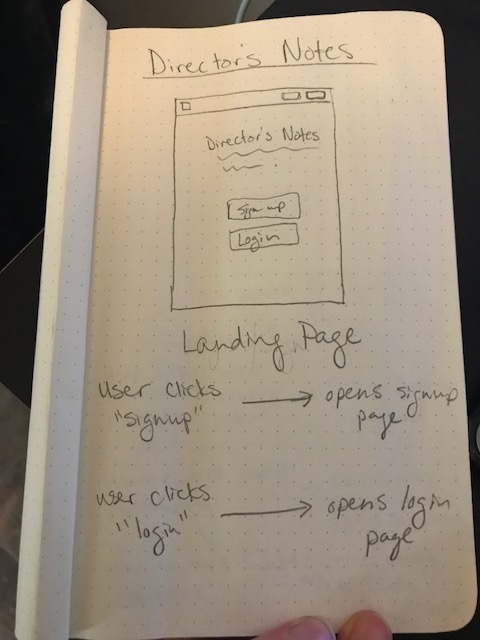 Director's Notes
Director's Notes
Sign up
Login
Landing Page
user clicks → opens signup
"signup" page
user clicks → opens login
"login" page